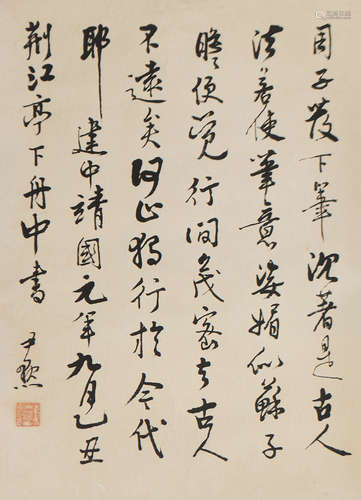 周子發下筆沉著是古人
法若使筆意姿媚似蘇子
瞻便覺行間茂密去古人
不遠矣何止獨行於今代
耶建中靖國元年九月乙丑
荊江亭下舟中書
尹默